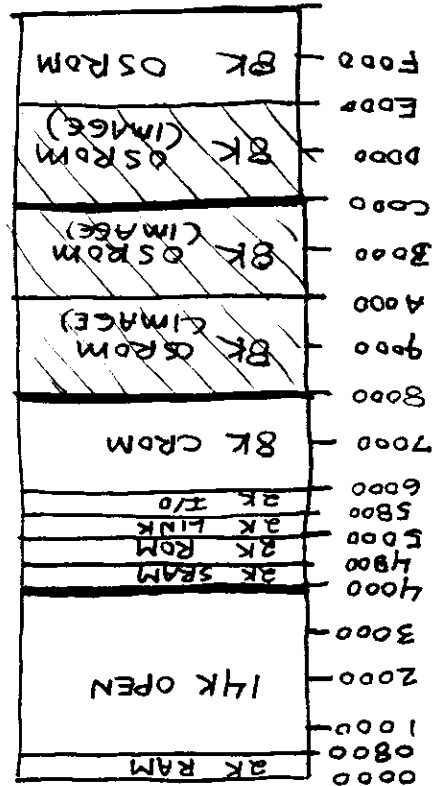 0000
2K RAM
0800
1000
2000 14K OPEN
3000
4000
2K SRAM
4800
2K ROM
5000
2K LINK
5800
2K I/O
6000
7000 8K CROM
8000
9000 8K OSROM
(IMAGE)
A000
B000 8K OSROM
(IMAGE)
C000
D000 8K OSROM
(IMAGE)
E000
F000 8K OSROM